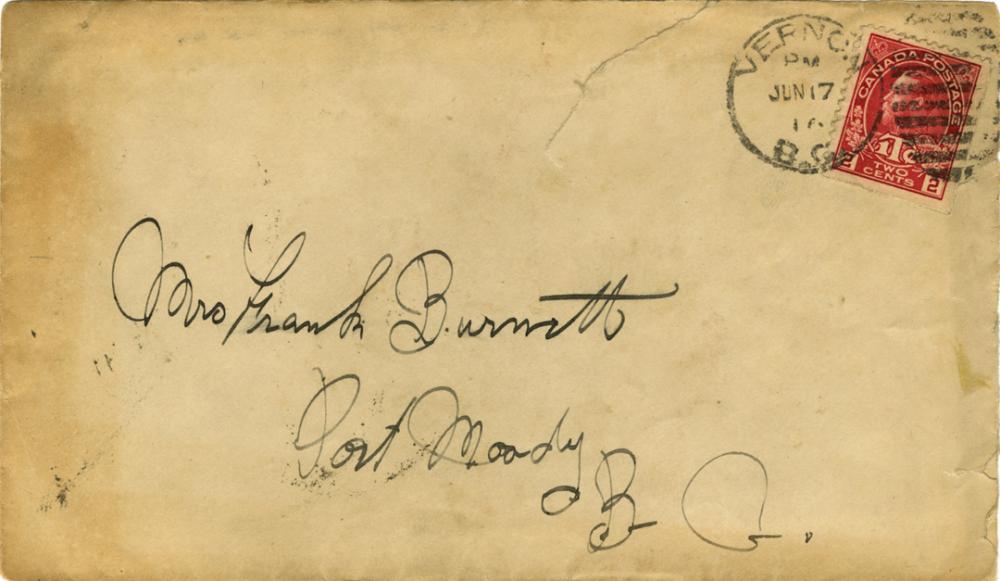 VERNON
PM
JUN 17
16
B.C.
CANADA POSTAGE
1Tc
2 TWO CENTS 2
Mrs Frank Burnett
Port Moody
B C.